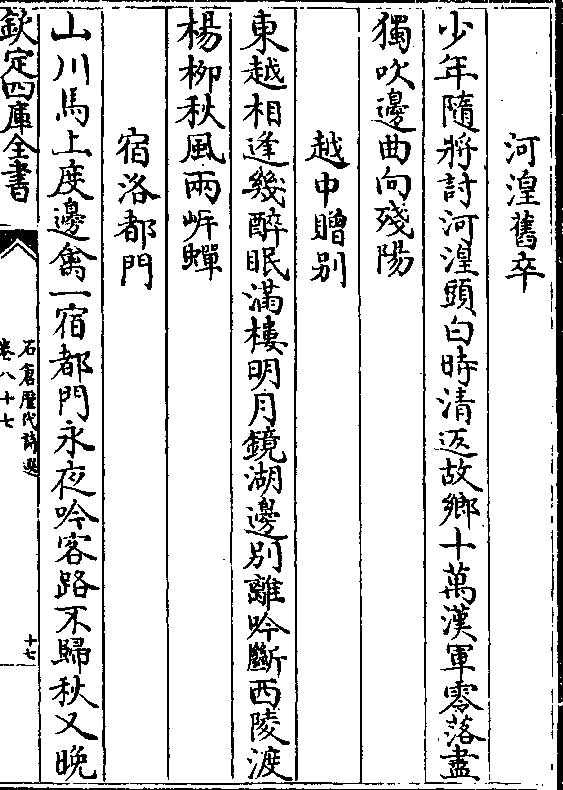 河湟舊卒
少年隨將討河湟頭白時清返故鄉十萬漢軍零落盡
獨吹邊曲向殘陽
越中贈别
東越相逢幾醉眠滿樓明月鏡湖邊别離吟斷西陵渡
楊柳秋風兩岍蟬
宿洛都門
山川馬上度邊禽一宿都門永夜吟客路不歸秋又晚
欽定四庫全書
石倉歷代詩選
卷八十七
十七